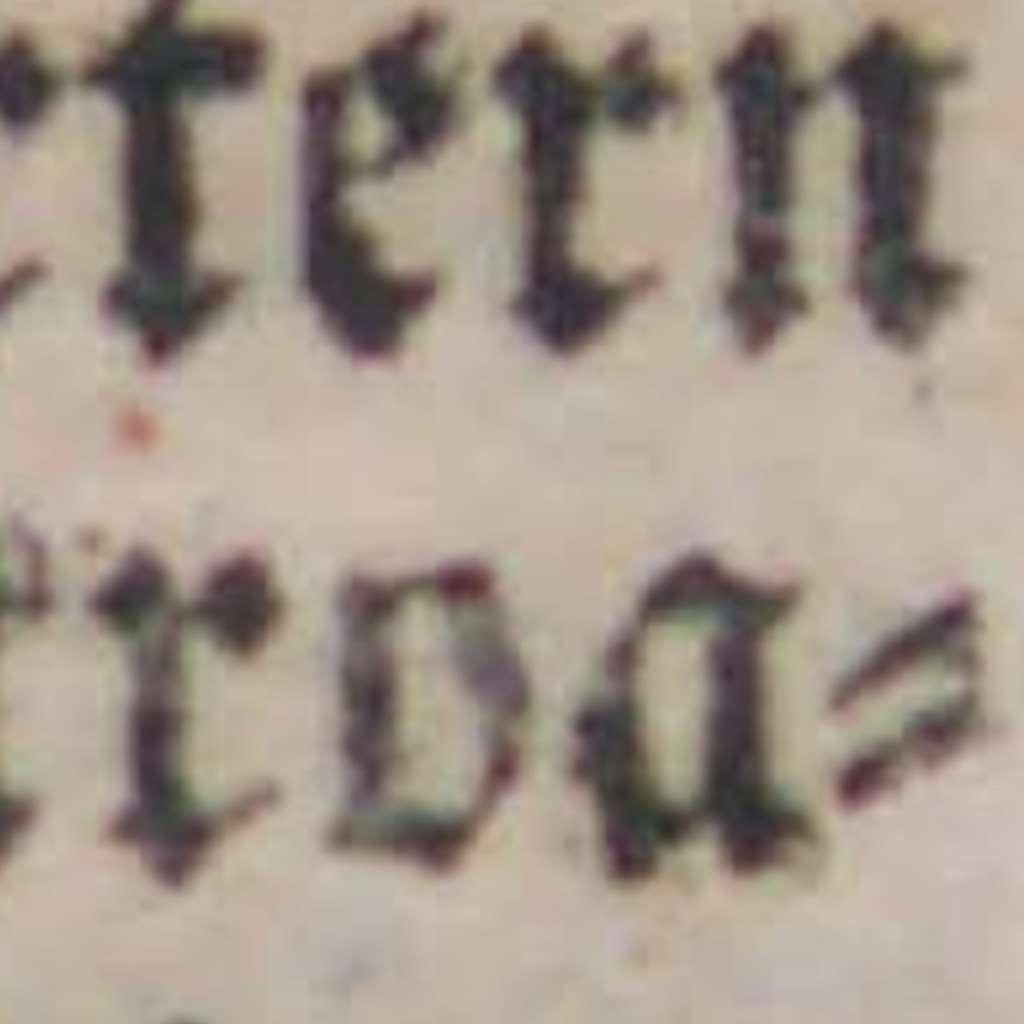 tern
rda=